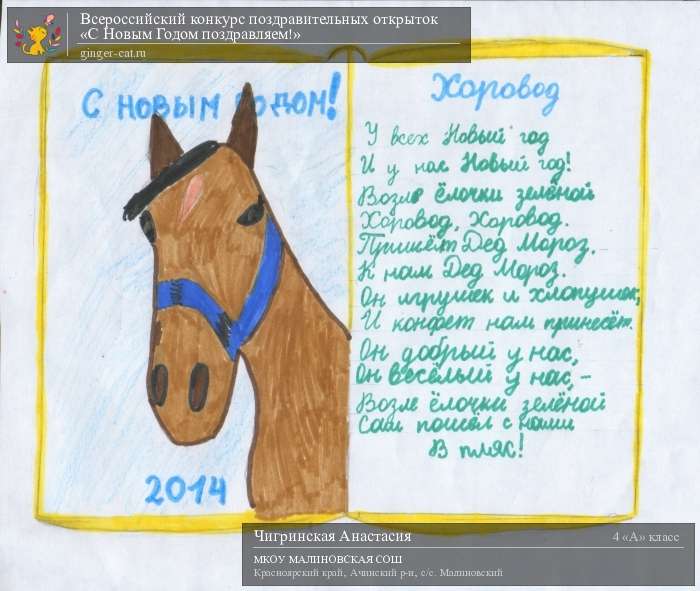 Всероссийский конкурс поздравительных открыток
«С Новым Годом поздравляем!»
ginger-cat.ru
С новым годом!
2014
Хоровод
У всех Новый год
И у нас Новый год!
Возле ёлочки зелёной
Хоровод, Хоровод.
Пришёл Дед Мороз,
К нам Дед Мороз.
Он игрушек и хлопушек,
И конфет нам принесёт.
Он добрый у нас,
Он весёлый у нас, –
Возле ёлочки зелёной
Сам пошёл с нами
В пляс!
Чигринская Анастасия
4 «А» класс
МКОУ МАЛИНОВСКАЯ СОШ
Красноярский край, Ачинский р-н, с/с. Малиновский